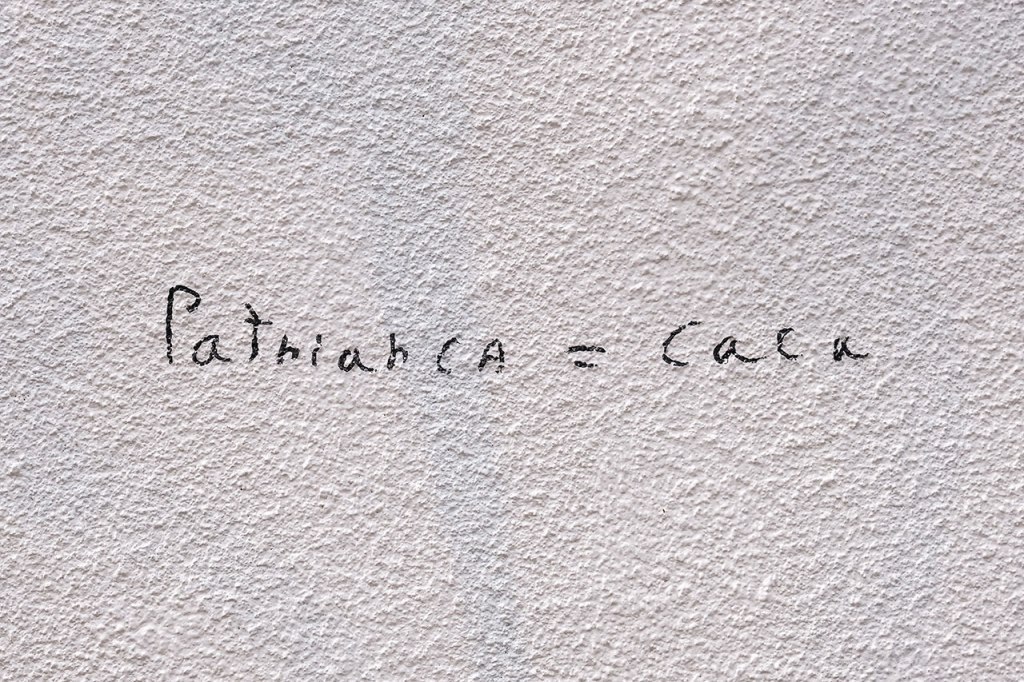 PatriarCA = caca